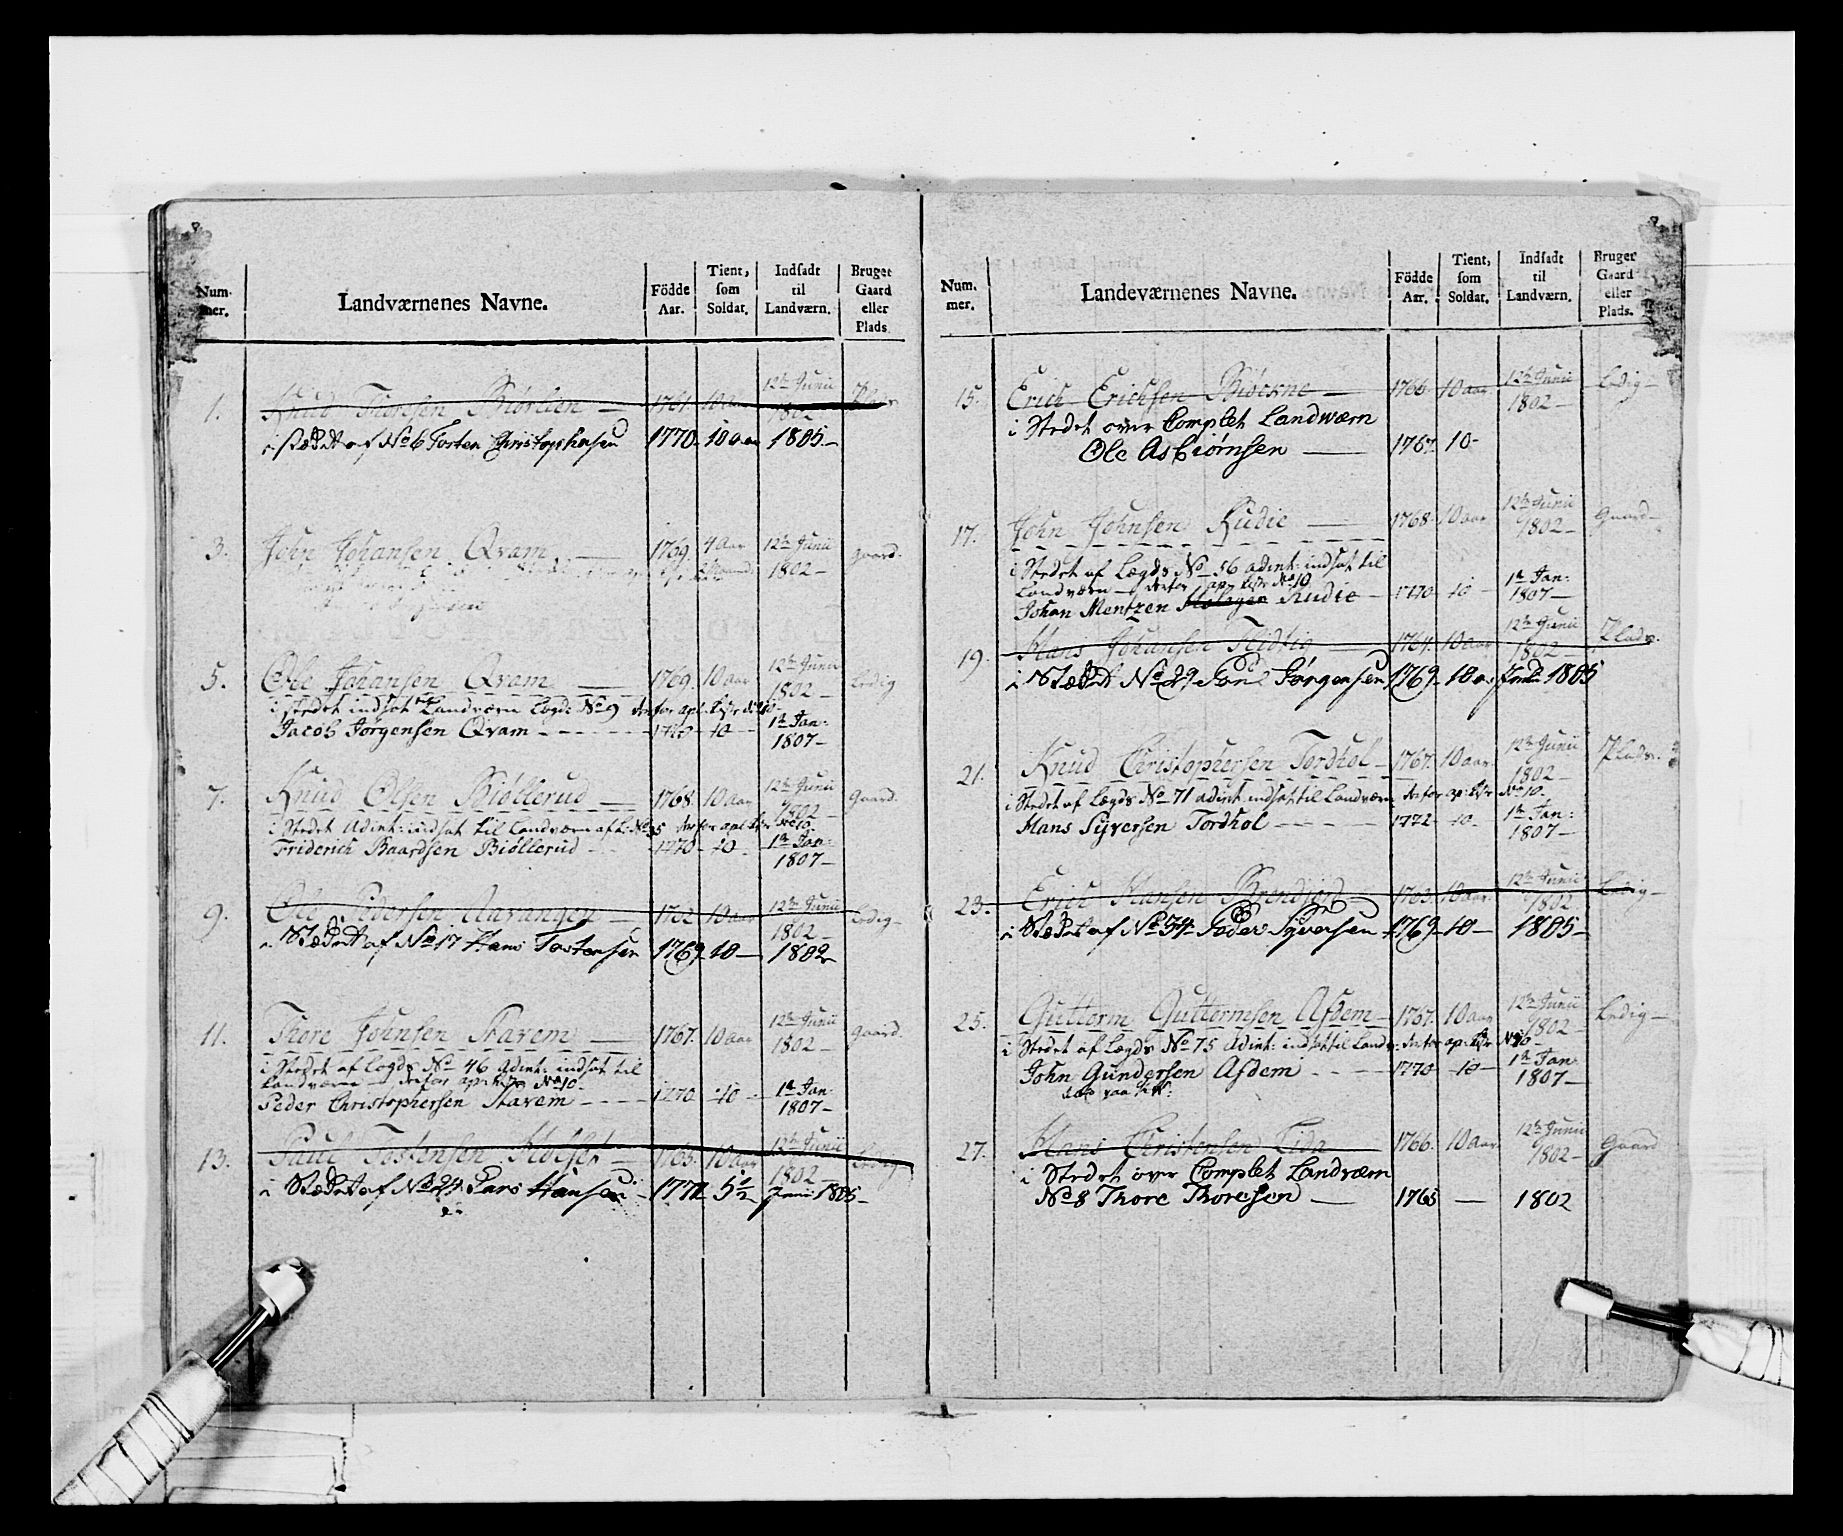 Num-
mer.
Landværnenes Navne.
Födde
Aar.
Tient,
som
Soldat.
Indsadt
til
Landværn.
Bruger
Gaard
eller
Plads.
1. Knud Thorsen Biørlien — 1761. 10 Aar 12te Junii 1802 Plads
i Stædet af No 6 Tosten Christophersen 1770. 10 aar 1805 —
3. John Johansen Qvam — 1769 4 Aar 12te Junii 1802 — Gaard.
5. Ole Johansen Qvam — 1769. 10 aar 12te Junii 1802 — Ledig
i Stedet indsat Landværn Lægd: No 9 derfor apl: Liste No 10
Jacob Jørgensen Qvam — 1770 - 10 - 1te Jan: 1807 —
7. Knud Olsen Biøllerud — 1768. 10 Aar 12te Junii 1802 — Gaard.
i Stedet Adint: indsat til Landværn af L: No 35 derfor apl: Liste No 10.
Friderich Baardsen Biøllerud - - 1770 - 10 - 1te Jan: 1807 —
9. Ole Pedersen Aavangen — 1762 10 aar 12te Junii 1802 — Ledig —
i Stædet af No 17 Hans Tostensen 1769 - 10 — 1802
11. Thore Johnsen Stavem — 1767. 10 aar 12te Junii 1802 — Gaard.
i Stedet af Lægds No 46 Adint: indsat til
Landværn — derfor ap: Liste No 10 -
Peder Christophersen Stavem - - - - 1770 - 10 - 1te Jan 1807 —
13. Paul Tostensen — 1765. 10 aar 12te Junii 1802 — Ledig
i Stædet af No 24 Lars Hansen — 1771 5 1/2 Junii 1805 —
Num.
mer.
Landeværnenes Navne.
Födde
Aar.
Tient,
som
Soldat.
Indsadt
til
Landværn.
Bruger
Gaard
eller
Plads.
15. Erich Erichsen — 1766. 10 aar 12te Junii 1802 — Ledig —
i Stedet over Complet Landværn
Ole Asbiørnsen — 1767. 10 -
17. John Johnsen Rudie — 1768. 10 aar 12te Junii 1802 — Gaard —
i Stedet af Lægds No 56 adint: indsat til
Landværn — derfor ap: Liste No 10
Johan Mentzen Rudie — 1770 - 10 - 1te Jan: 1807 —
19. Hans Johansen — 1764. 10 aar 12te Junii 1802 — Plads.
i Stædet No 29 Jørgensen 1769 - 10 a: Junii 1805
21. Knud Christophersen Tordhol — 1767. 10 aar 12te Junii 1802 — Plads.
i Stedet af Lægds No 71 adint indsat til Landværn derfor ap: Liste No 10.
Hans Syversen Tordhol - - - - 1772 - 10. 1te Jan: 1807 —
23. Erich Hansen — 1763. 10 aar. 12te Junii 1802 — Ledig —
i Stædet af No 34 Peder Syversen — 1769 - 10 — 1805 —
25. Gutterm Guttermsen Afdem — 1767. 10 aar 12te Junii 1802 — Ledig —
i Stedet af Lægds No 75 Adint: indsat til Landv: derfor ap: Liste No 10 -
John Gundersen Afdem - - - - 1770 - 10 - 1te Jan: 1807 —
27. Hans Christensen — 1766. 10 Aar 12te Junii 1802 — Gaard
i Stedet over Complet Landværn
No 8 Thore Thoresen — 1765 — 1802